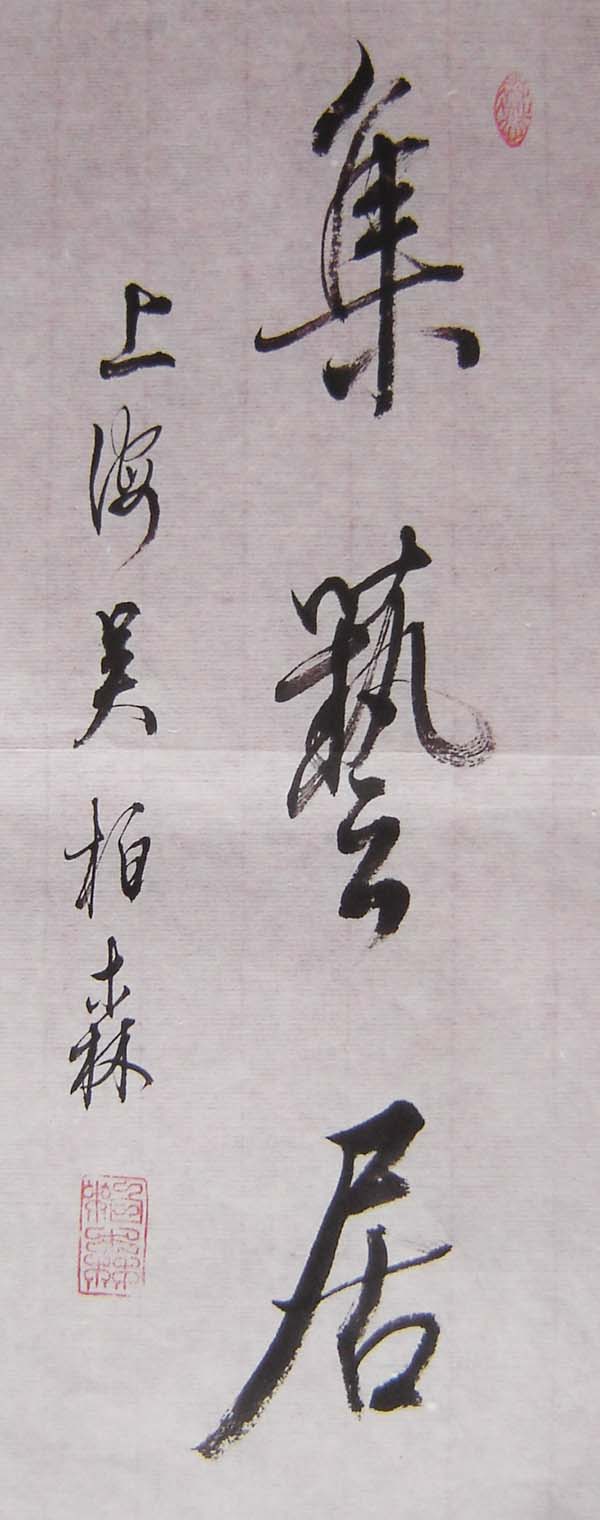 集藝居
上海吴柏森